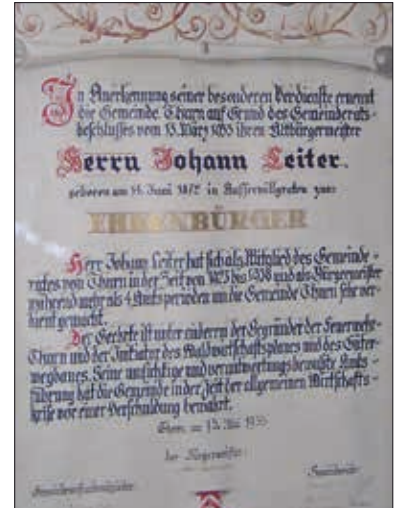 In Anerkennung seiner besonderen Verdienste ernennt
die Gemeinde Thurn auf Grund des Gemeinderats-
beschlusses vom 13. März 1955 ihren Altbürgermeister
Herrn Johann Leiter.
geboren am 14. Juni 1872 in Ausservillgraten zum
EHRENBÜRGER
Herr Johann Leiter hat sich als Mitglied des Gemeinde-
rates von Thurn in der Zeit von 1923 bis 1938 und als Bürgermeister
während mehr als 4 Amtsperioden um die Gemeinde Thurn sehr ver-
dient gemacht.
Der Geehrte ist unter anderem der Begründer der Feuerwehr
Thurn und der Initiator des Waldwirtschaftsplanes und des Güter-
wegbaues. Seine umsichtige und verantwortungsbewußte Amts-
führung hat die Gemeinde in der Zeit der allgemeinen Wirtschafts-
krise vor einer Verschuldung bewahrt.
Thurn, am 15. Mai 1955
der Bürgermeister: